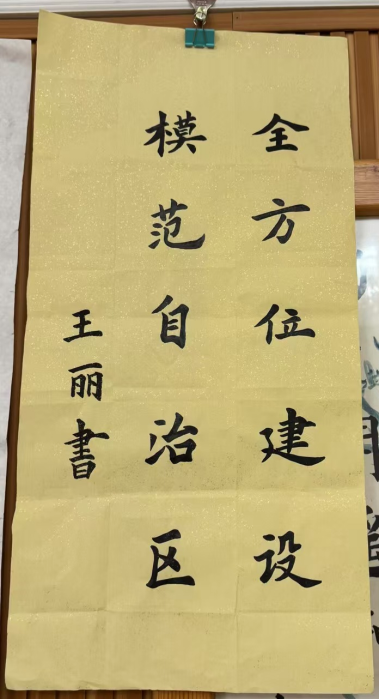 全方位建设
模范自治区
王丽書